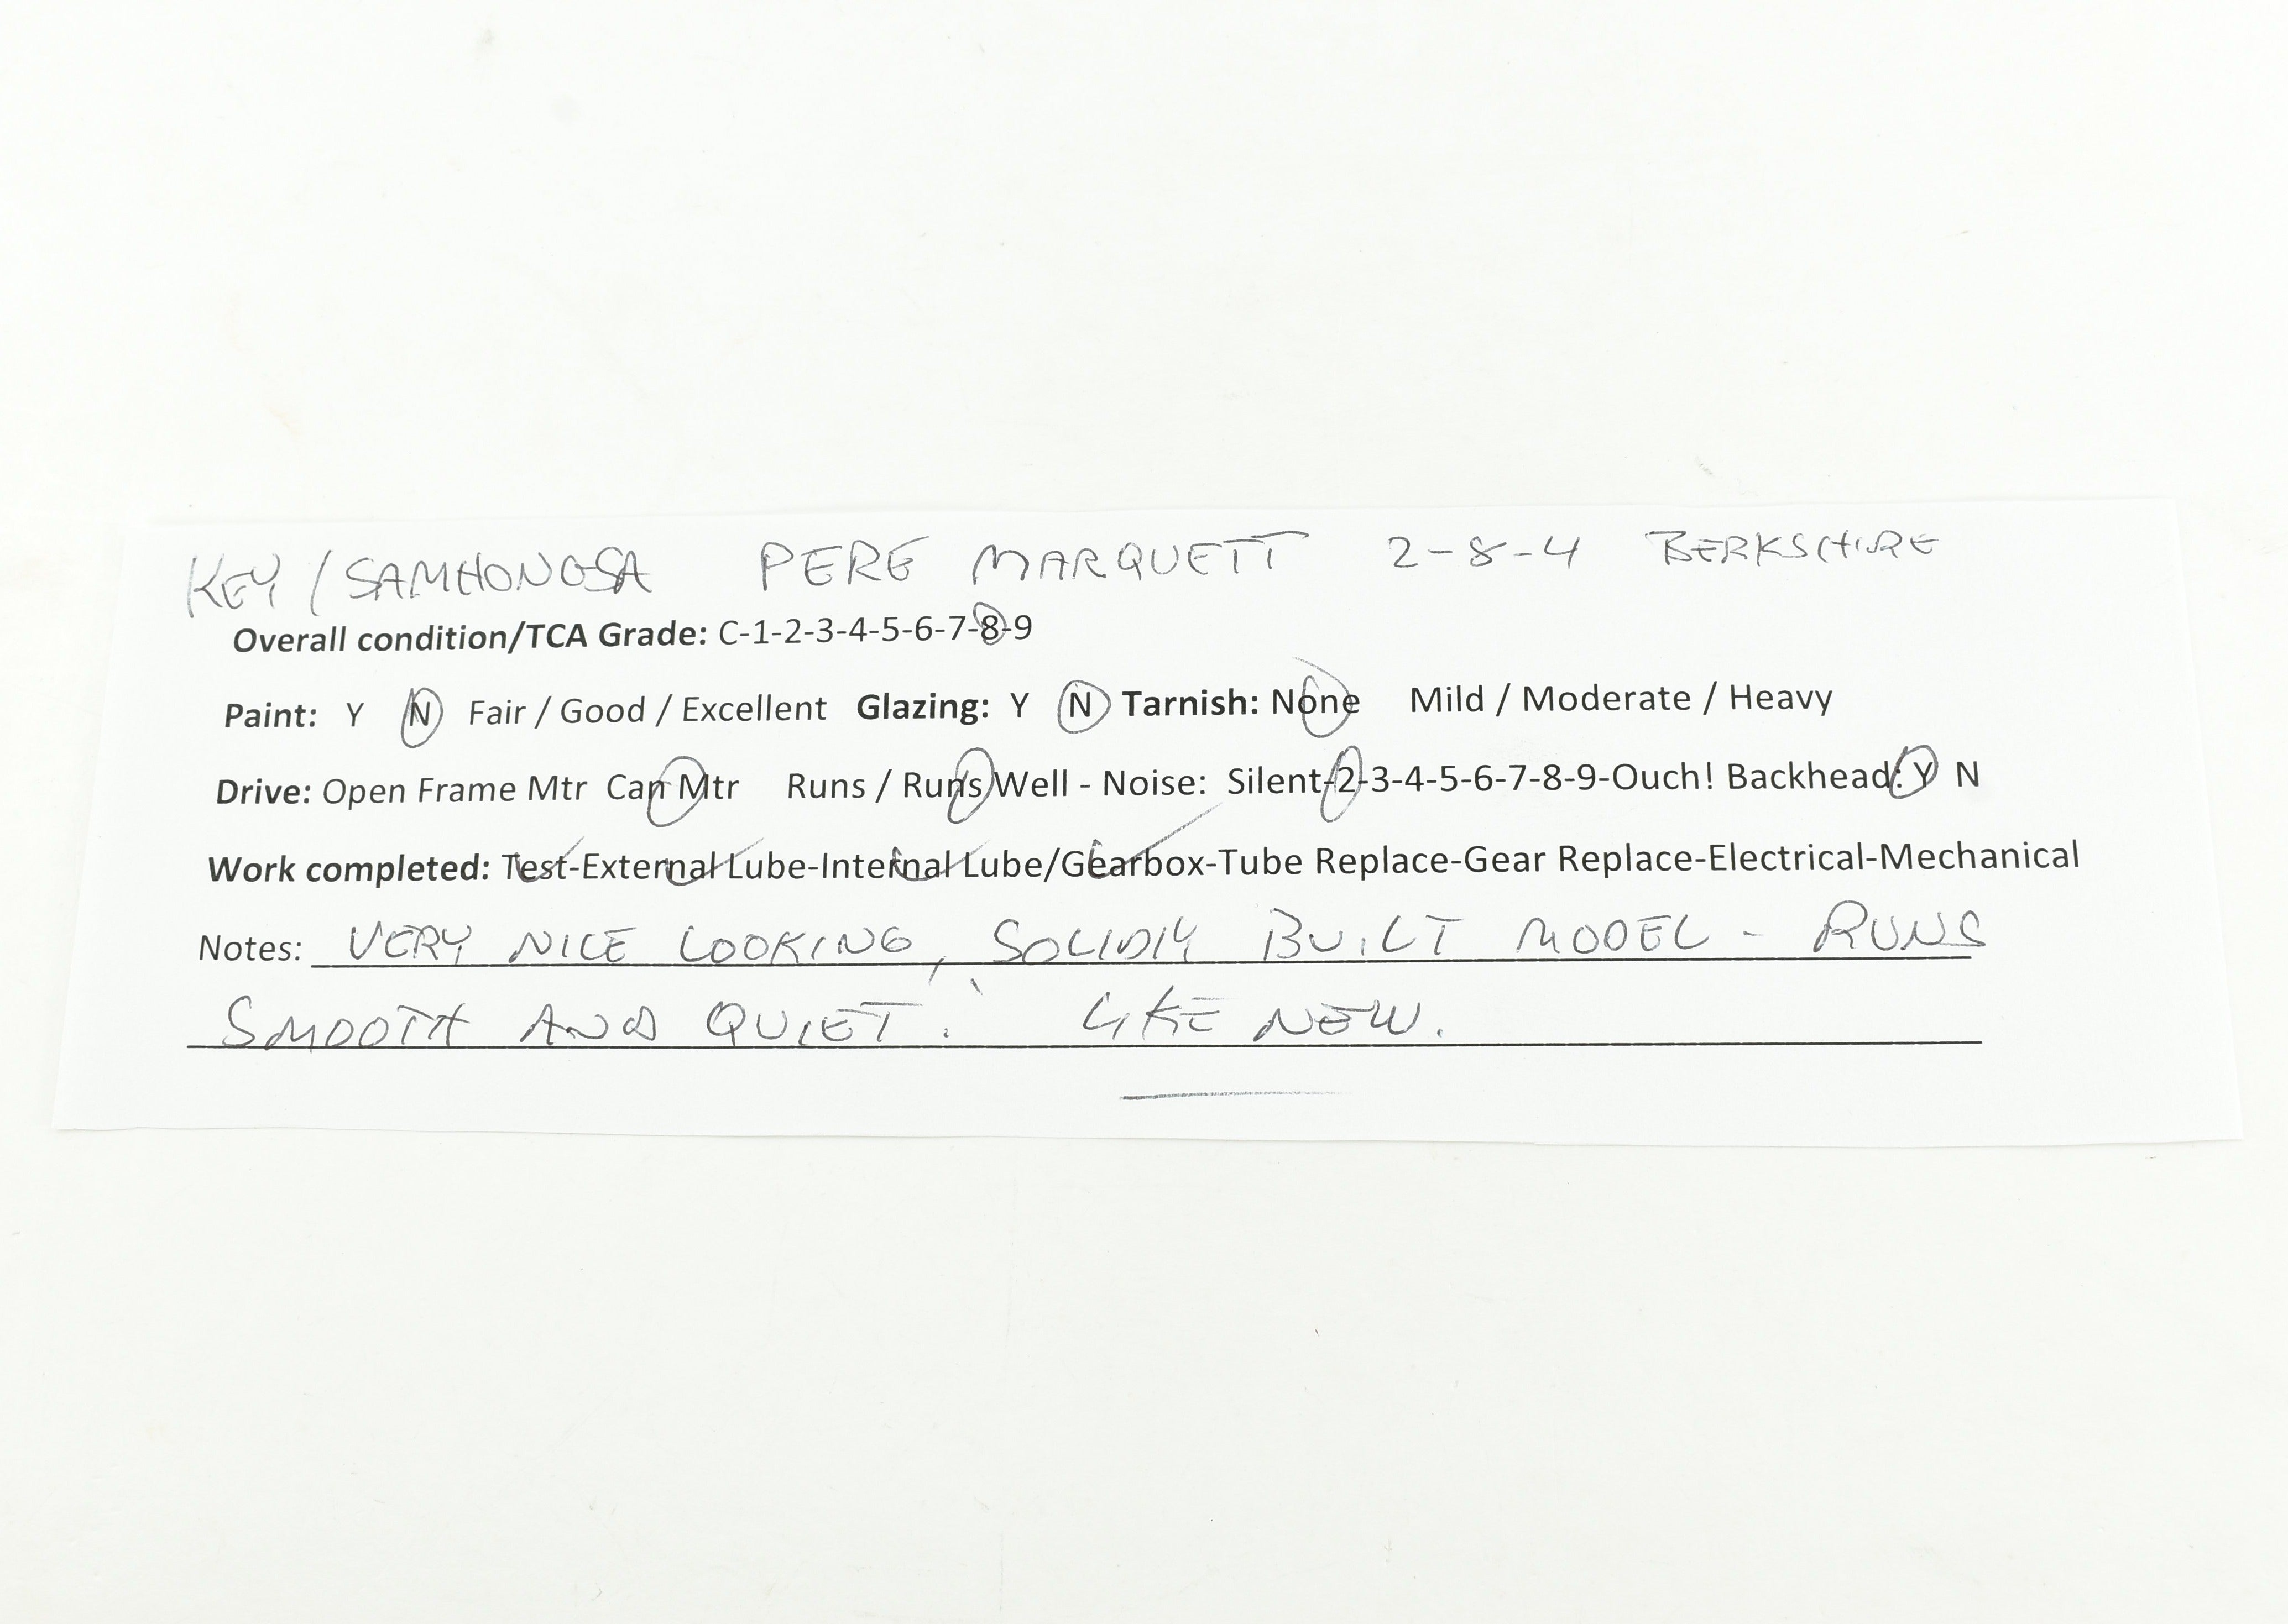 KEY / SAMHONGSA PERE MARQUETT 2-8-4 BERKSHIRE
Overall condition/TCA Grade: C-1-2-3-4-5-6-7-8-9
Paint: Y N Fair / Good / Excellent Glazing: Y N Tarnish: None Mild / Moderate / Heavy
Drive: Open Frame Mtr Can Mtr Runs / Runs Well - Noise: Silent-2-3-4-5-6-7-8-9-Ouch! Backhead: Y N
Work completed: Test-External Lube-Internal Lube/Gearbox-Tube Replace-Gear Replace-Electrical-Mechanical
Notes: VERY NICE LOOKING, SOLIDLY BUILT MODEL - RUNS
SMOOTH AND QUIET. LIKE NEW.